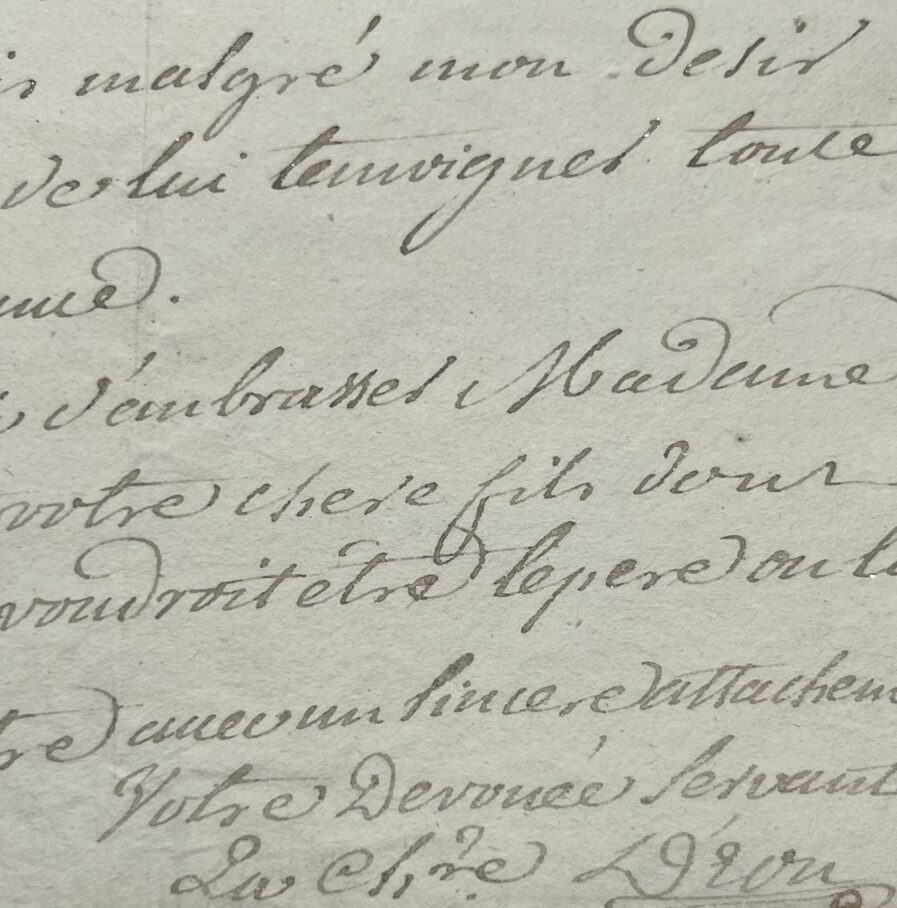 malgré mon desir
de lui temoigner toute
d'anbrasser Madame
votre chere fils dont
voudroit être le pere ou
avec un sincere attachem
Votre Devouée servant
La Ch.re D'Eon